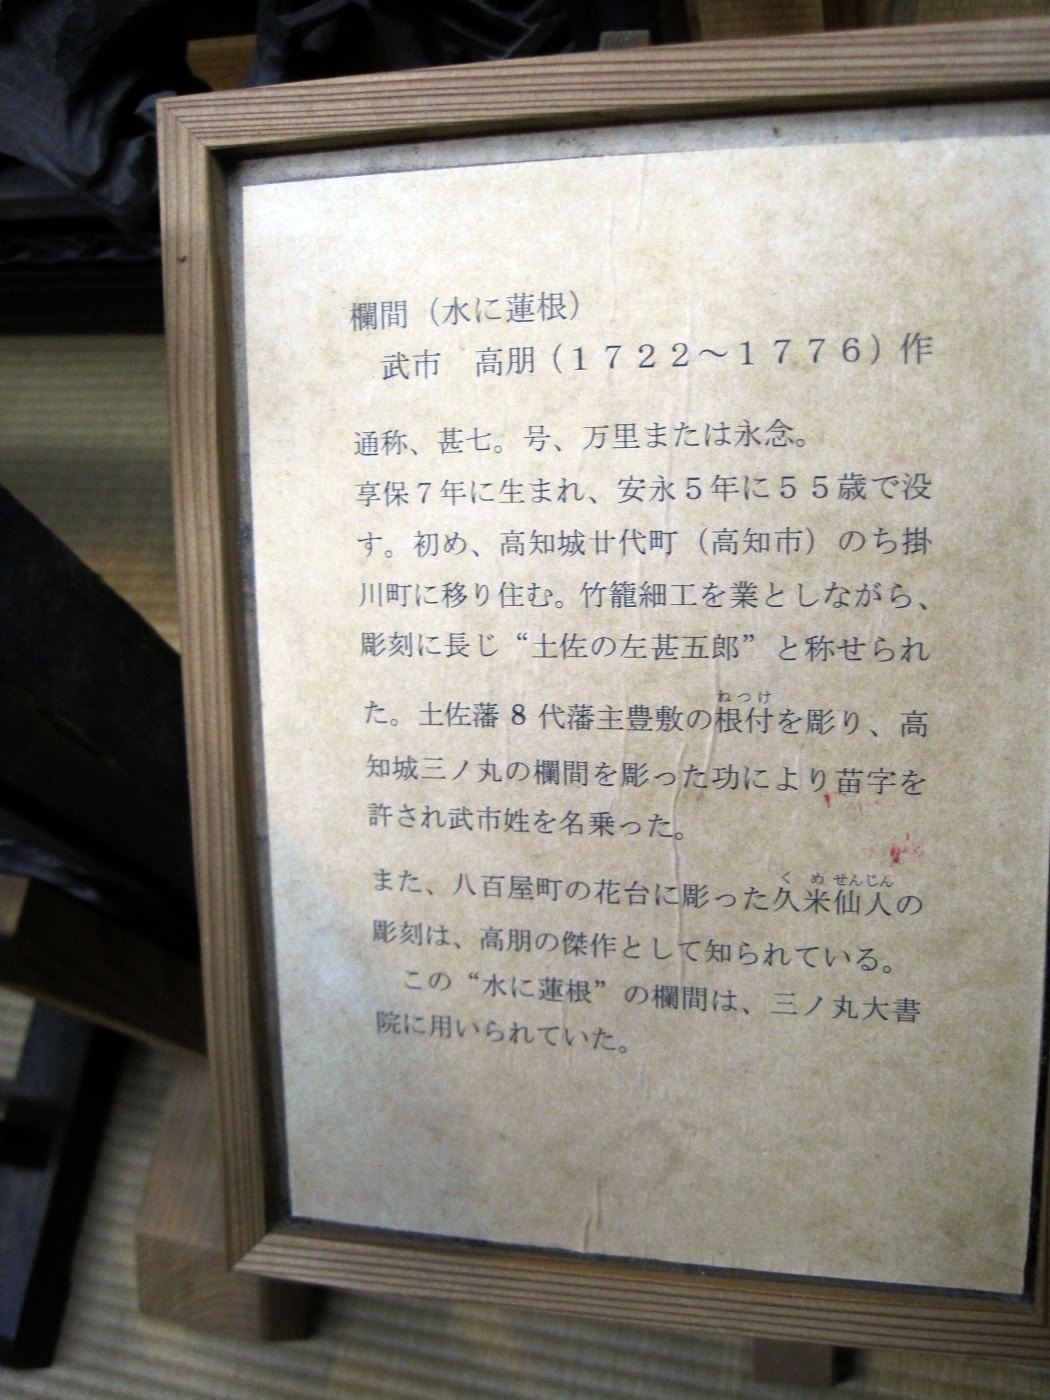 欄間（水に蓮根）
武市　高朋（１７２２～１７７６）作
通称、甚七。号、万里または永念。
享保７年に生まれ、安永５年に５５歳で没
す。初め、高知城廿代町（高知市）のち掛
川町に移り住む。竹籠細工を業としながら、
彫刻に長じ“土佐の左甚五郎”と称せられ
ねつけ
た。土佐藩８代藩主豊敷の根付を彫り、高
知城三ノ丸の欄間を彫った功により苗字を
許され武市姓を名乗った。
くめせんじん
また、八百屋町の花台に彫った久米仙人の
彫刻は、高朋の傑作として知られている。
この“水に蓮根”の欄間は、三ノ丸大書
院に用いられていた。